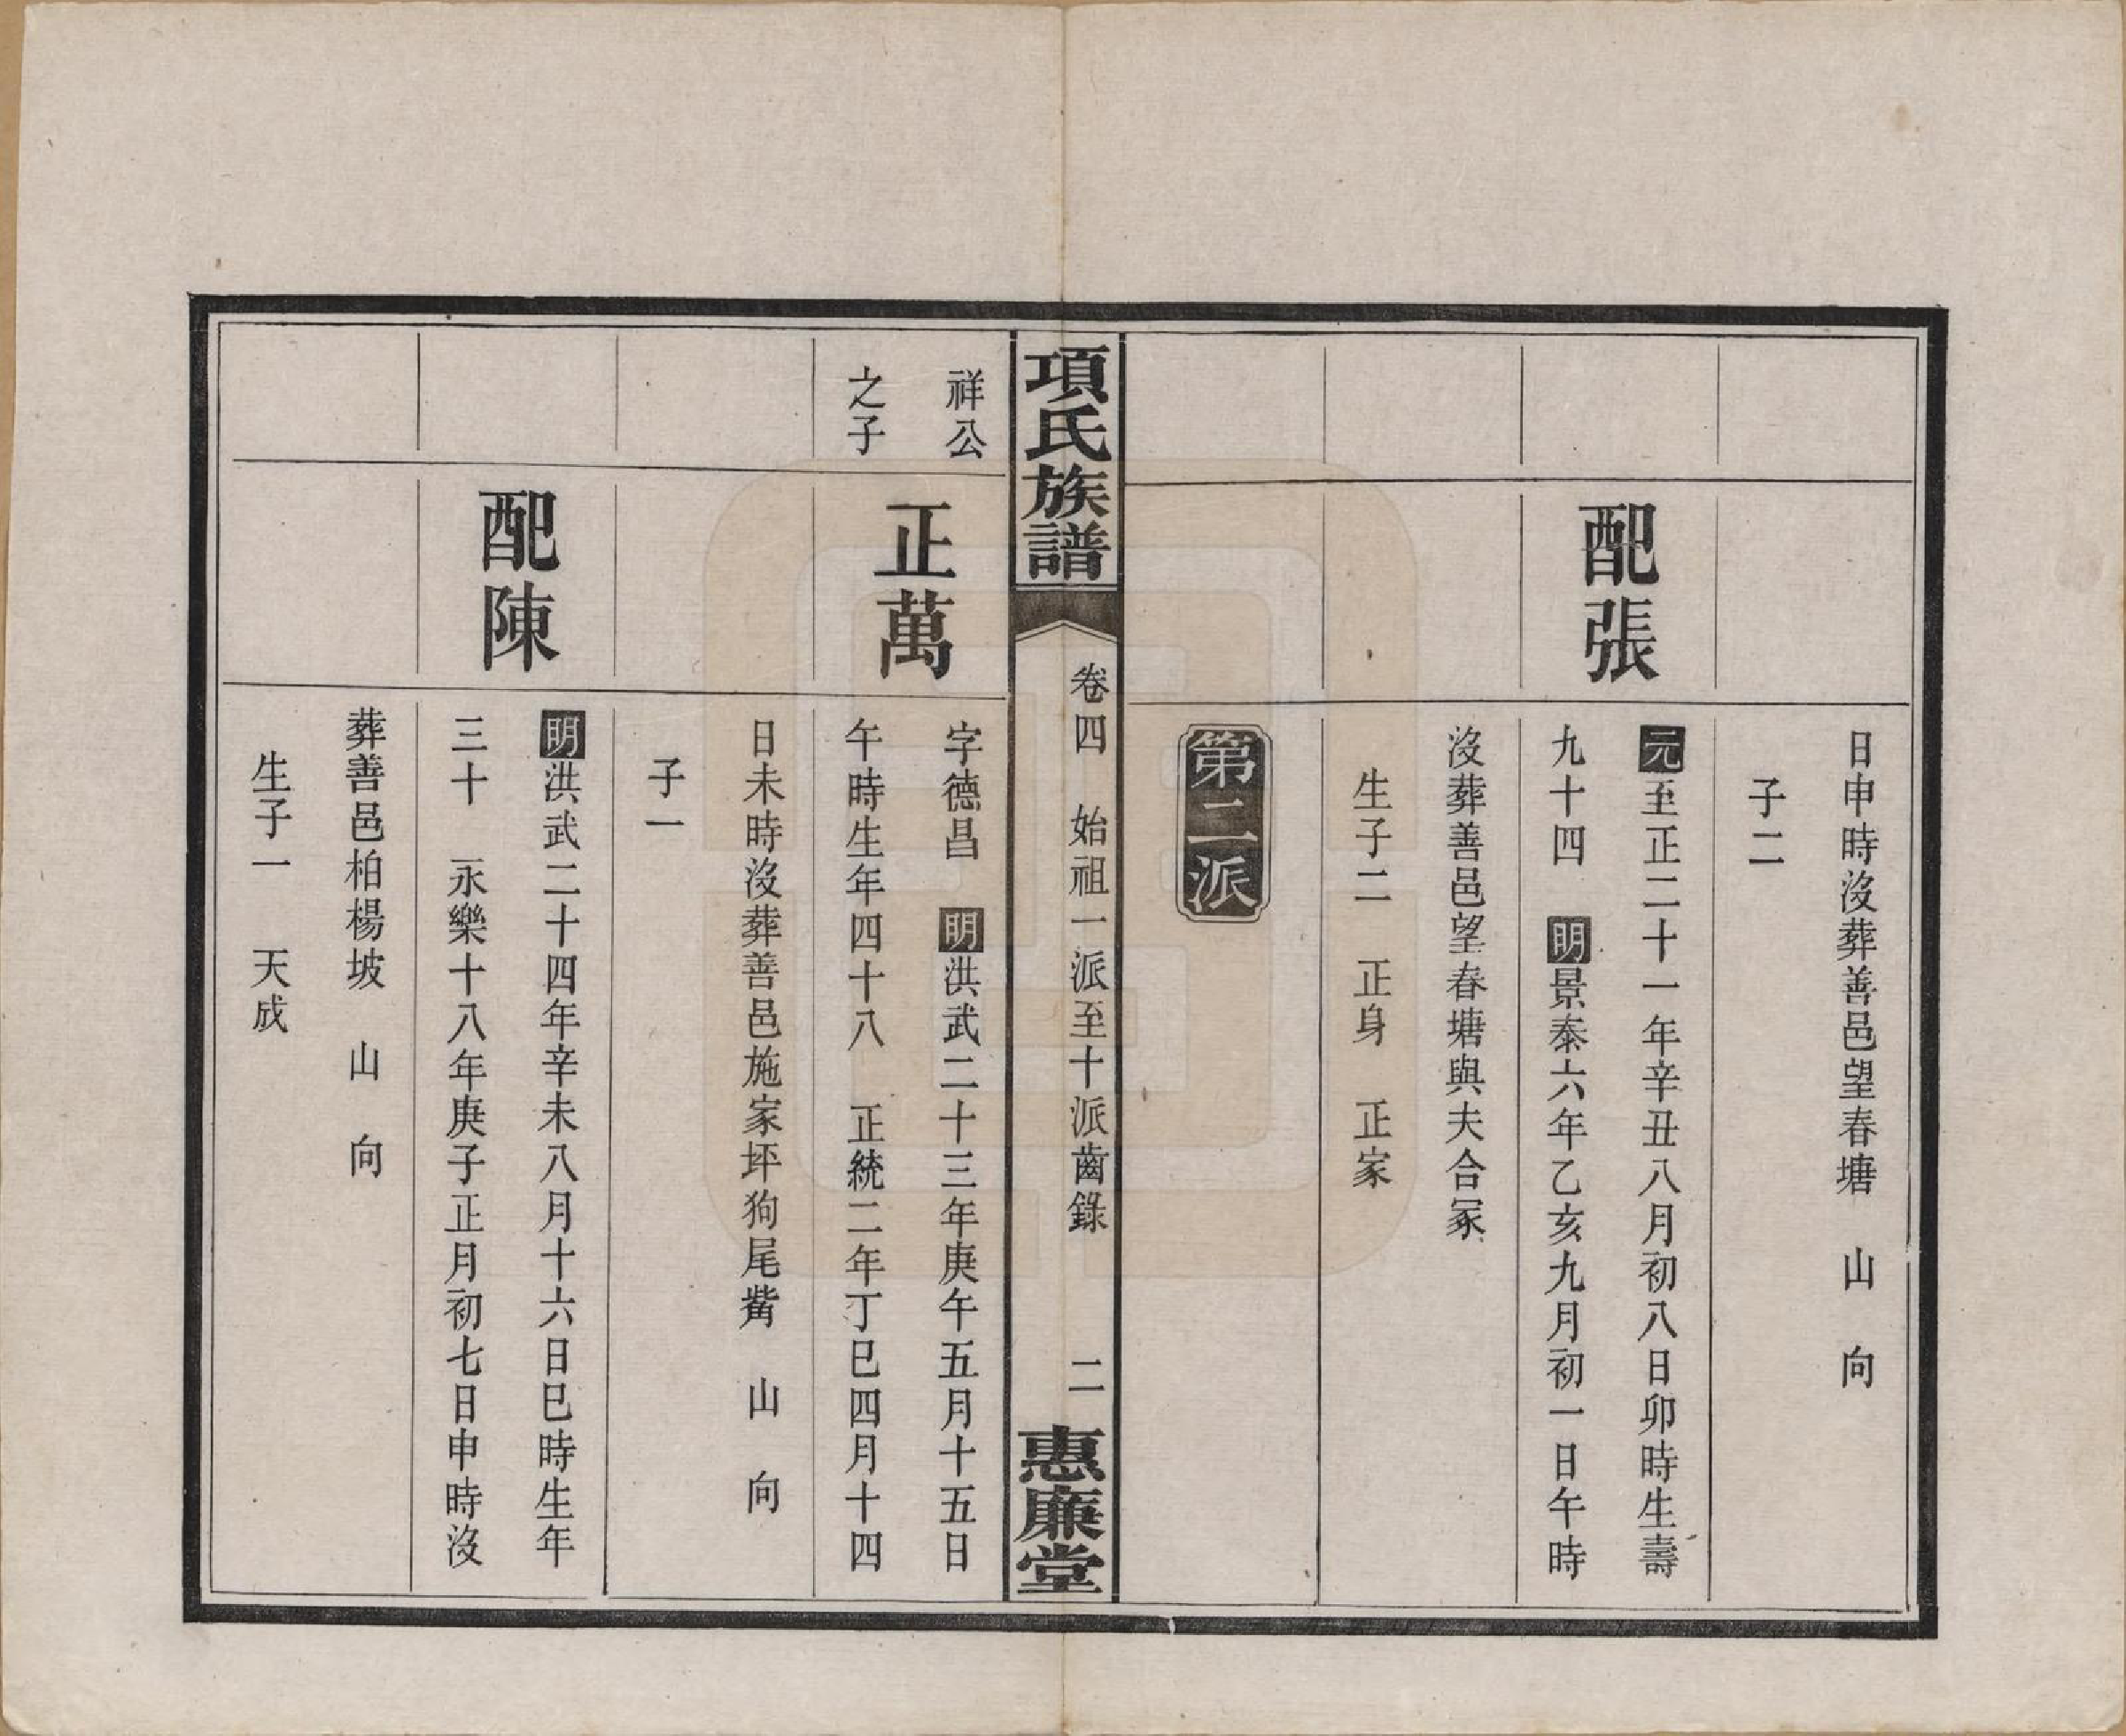 日申時沒葬善邑望春塘　山　向
子二
配張
元至正二十一年辛丑八月初八日卯時生壽
九十四　明景泰六年乙亥九月初一日午時
沒葬善邑望春塘與夫合冢
生子二　正身　正家
第二派
項氏族譜
卷四　始祖一派至十派齒錄
二
惠廉堂
祥公
之子
正萬
字德昌　明洪武二十三年庚午五月十五日
午時生年四十八　正統二年丁巳四月十四
日未時沒葬善邑施家坪狗尾觜　山　向
子一
配陳
明洪武二十四年辛未八月十六日巳時生年
三十　永樂十八年庚子正月初七日申時沒
葬善邑柏楊坡　山　向
生子一　天成